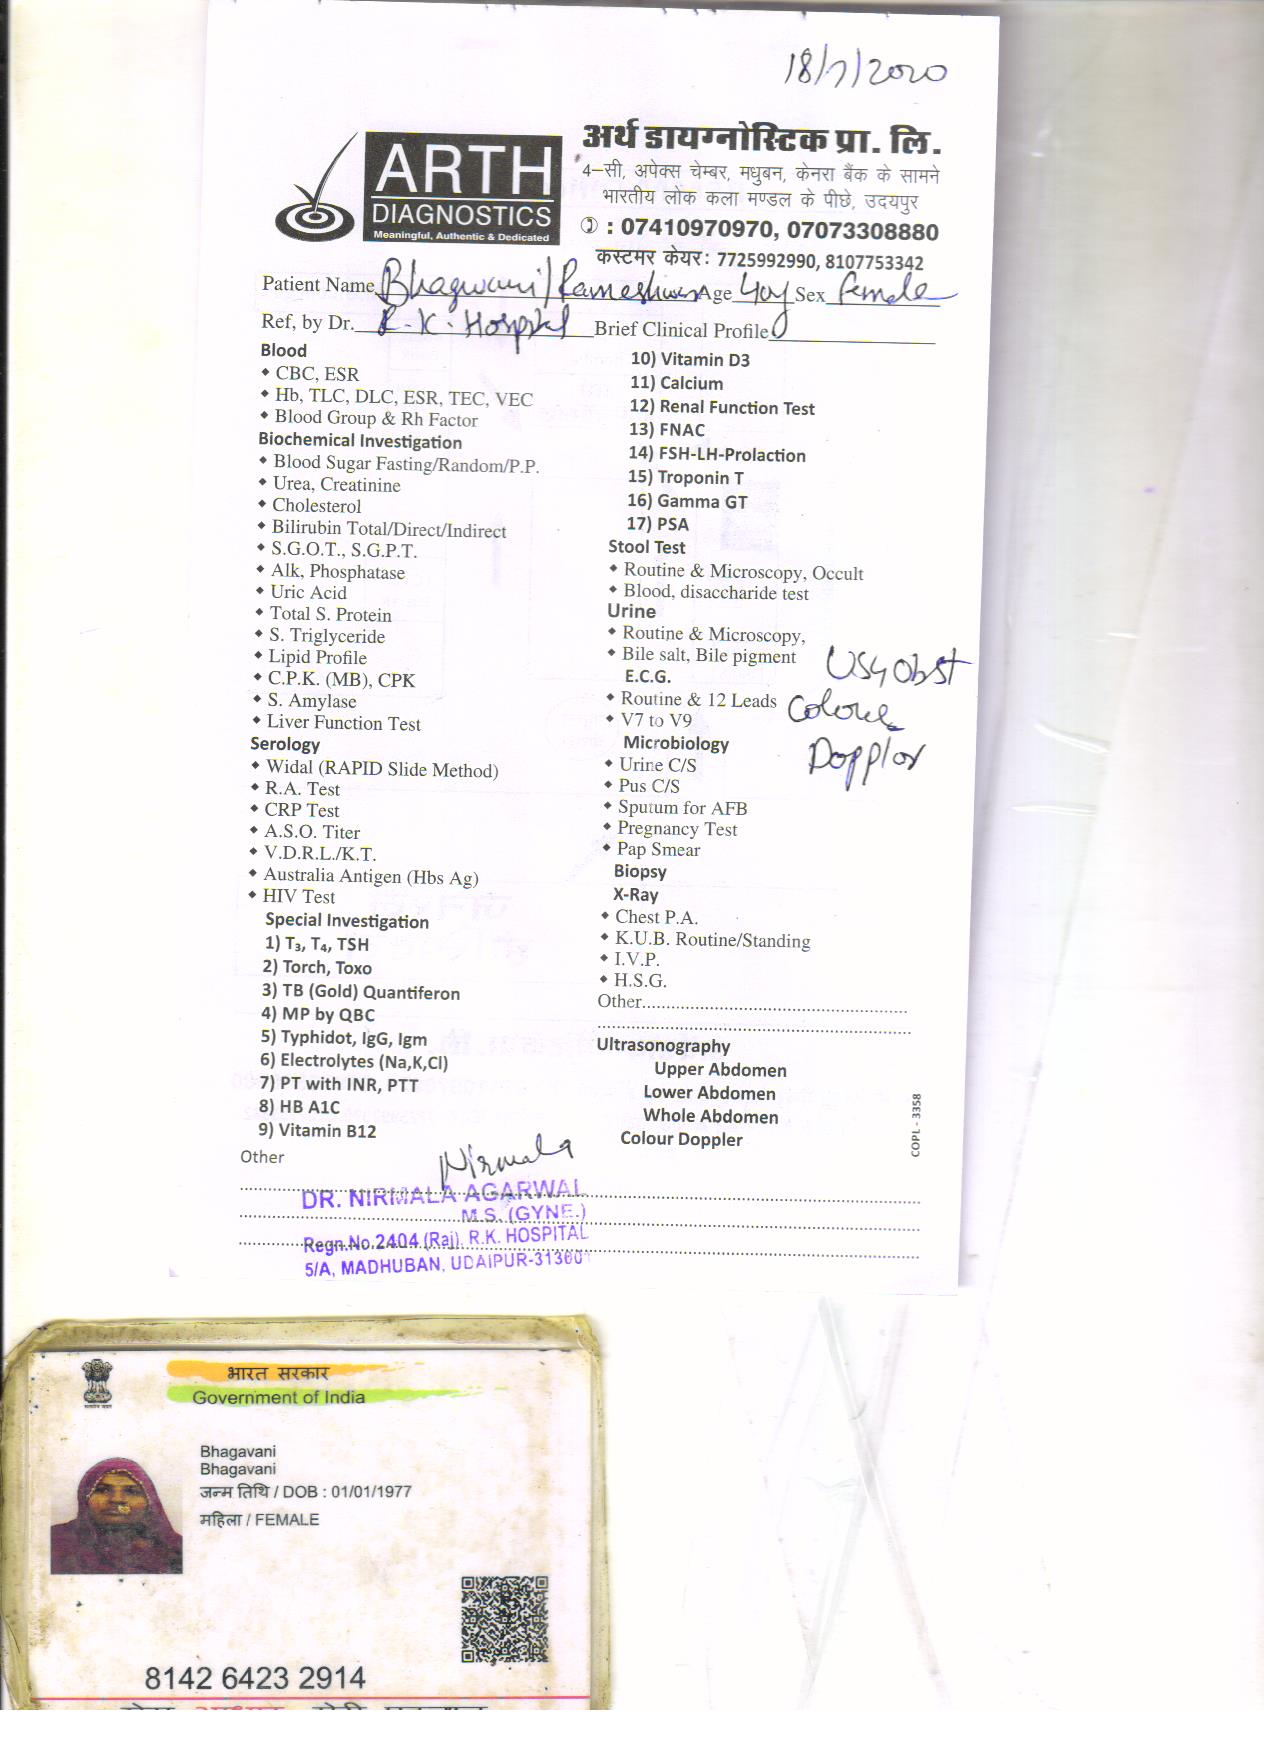 18/7/2020
ARTH
DIAGNOSTICS
Meaningful, Authentic & Dedicated
अर्थ डायग्नोस्टिक प्रा. लि.
4–सी, अपेक्स चेम्बर, मधुबन, केनरा बैंक के सामने
भारतीय लोक कला मण्डल के पीछे, उदयपुर
: 07410970970, 07073308880
कस्टमर केयर: 7725992990, 8107753342
Patient Name Bhagwani/Rameshwar Age 40y Sex Female
Ref, by Dr. R.K. Hospital Brief Clinical Profile
Blood
• CBC, ESR
• Hb, TLC, DLC, ESR, TEC, VEC
• Blood Group & Rh Factor
Biochemical Investigation
• Blood Sugar Fasting/Random/P.P.
• Urea, Creatinine
• Cholesterol
• Bilirubin Total/Direct/Indirect
• S.G.O.T., S.G.P.T.
• Alk, Phosphatase
• Uric Acid
• Total S. Protein
• S. Triglyceride
• Lipid Profile
• C.P.K. (MB), CPK
• S. Amylase
• Liver Function Test
Serology
• Widal (RAPID Slide Method)
• R.A. Test
• CRP Test
• A.S.O. Titer
• V.D.R.L./K.T.
• Australia Antigen (Hbs Ag)
• HIV Test
Special Investigation
1) T₃, T₄, TSH
2) Torch, Toxo
3) TB (Gold) Quantiferon
4) MP by QBC
5) Typhidot, IgG, Igm
6) Electrolytes (Na,K,Cl)
7) PT with INR, PTT
8) HB A1C
9) Vitamin B12
Other
10) Vitamin D3
11) Calcium
12) Renal Function Test
13) FNAC
14) FSH-LH-Prolaction
15) Troponin T
16) Gamma GT
17) PSA
Stool Test
• Routine & Microscopy, Occult
• Blood, disaccharide test
Urine
• Routine & Microscopy,
• Bile salt, Bile pigment
E.C.G.
• Routine & 12 Leads
• V7 to V9
Microbiology
• Urine C/S
• Pus C/S
• Sputum for AFB
• Pregnancy Test
• Pap Smear
Biopsy
X-Ray
• Chest P.A.
• K.U.B. Routine/Standing
• I.V.P.
• H.S.G.
Other
Ultrasonography
Upper Abdomen
Lower Abdomen
Whole Abdomen
Colour Doppler
USG Obst
Colour
Dopplor
COPL - 3358
Nirmala
DR. NIRMALA AGARWAL
M.S. (GYNE.)
Regn.No.2404 (Raj). R.K. HOSPITAL
5/A, MADHUBAN, UDAIPUR-313001
भारत सरकार
Government of India
Bhagavani
Bhagavani
जन्म तिथि / DOB : 01/01/1977
महिला / FEMALE
8142 6423 2914